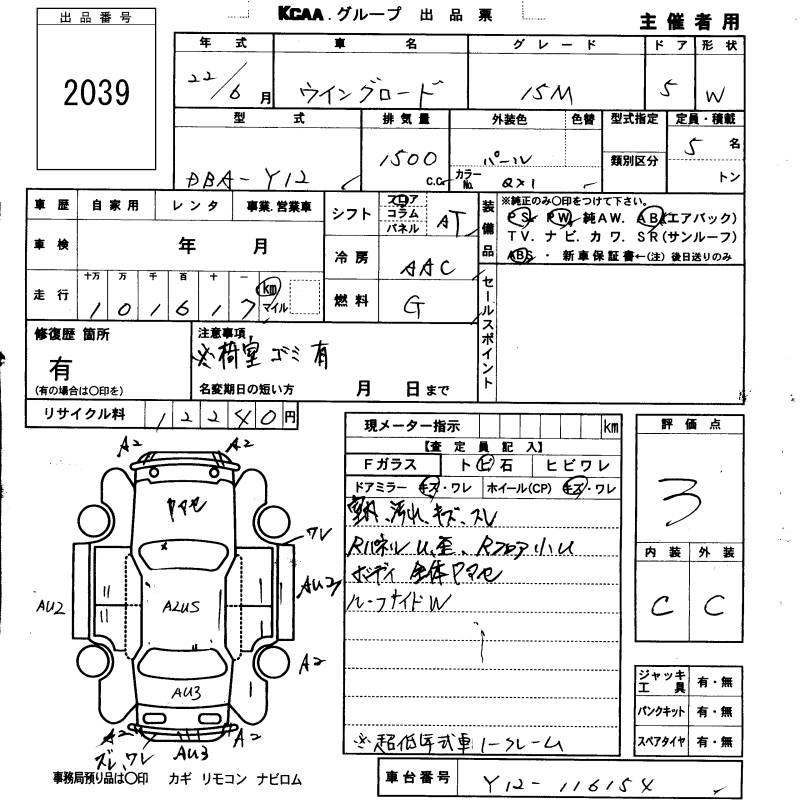 KCAA. グループ 出品票
主催者用
出品番号
2039
年式 車名 グレード ドア 形状
22/6 月 ウイングロード 15M 5 W
型式 排気量 外装色 色替 型式指定 定員・積載
DBA-Y12 1500 C.C. パール 類別区分 5 名
カラーNo. QX1 トン
車歴 自家用 レンタ 事業.営業車
シフト フロア コラム パネル AT
装備品
※純正のみ〇印をつけて下さい。
PS. PW. 純AW. AB(エアバック)
TV. ナビ. カワ. SR(サンルーフ)
ABS ・ 新車保証書←(注) 後日送りのみ
車検 年 月
冷房 AAC
走行 十万 万 千 百 十 一
1 0 1 6 1 7 km マイル
燃料 G
セールスポイント
修復歴 箇所
有
(有の場合は〇印を)
注意事項
※荷室 ゴミ 有
名変期日の短い方 月 日まで
リサイクル料 12240円
現メーター指示 km
【査定員記入】
Fガラス ト ビ 石 ヒビワレ
ドアミラー キズ・ワレ ホイール(CP) キズ・ワレ
室内、汚れ、キズ、スレ
Rパネル U、歪、Rフロア 小U
ボディ 全体 ヤマセ
ルーフサイド W
※超低年式車 ノークレーム
評価点
3
内装 外装
C C
ジャッキ工具 有・無
パンクキット 有・無
スペアタイヤ 有・無
A2 A2
ヤマセ
ワレ
AU2
AU2
A2US
A2
AU3
A2 A2
ズレ,ワレ AU3
事務局預り品は〇印 カギ リモコン ナビロム
車台番号 Y12-116154